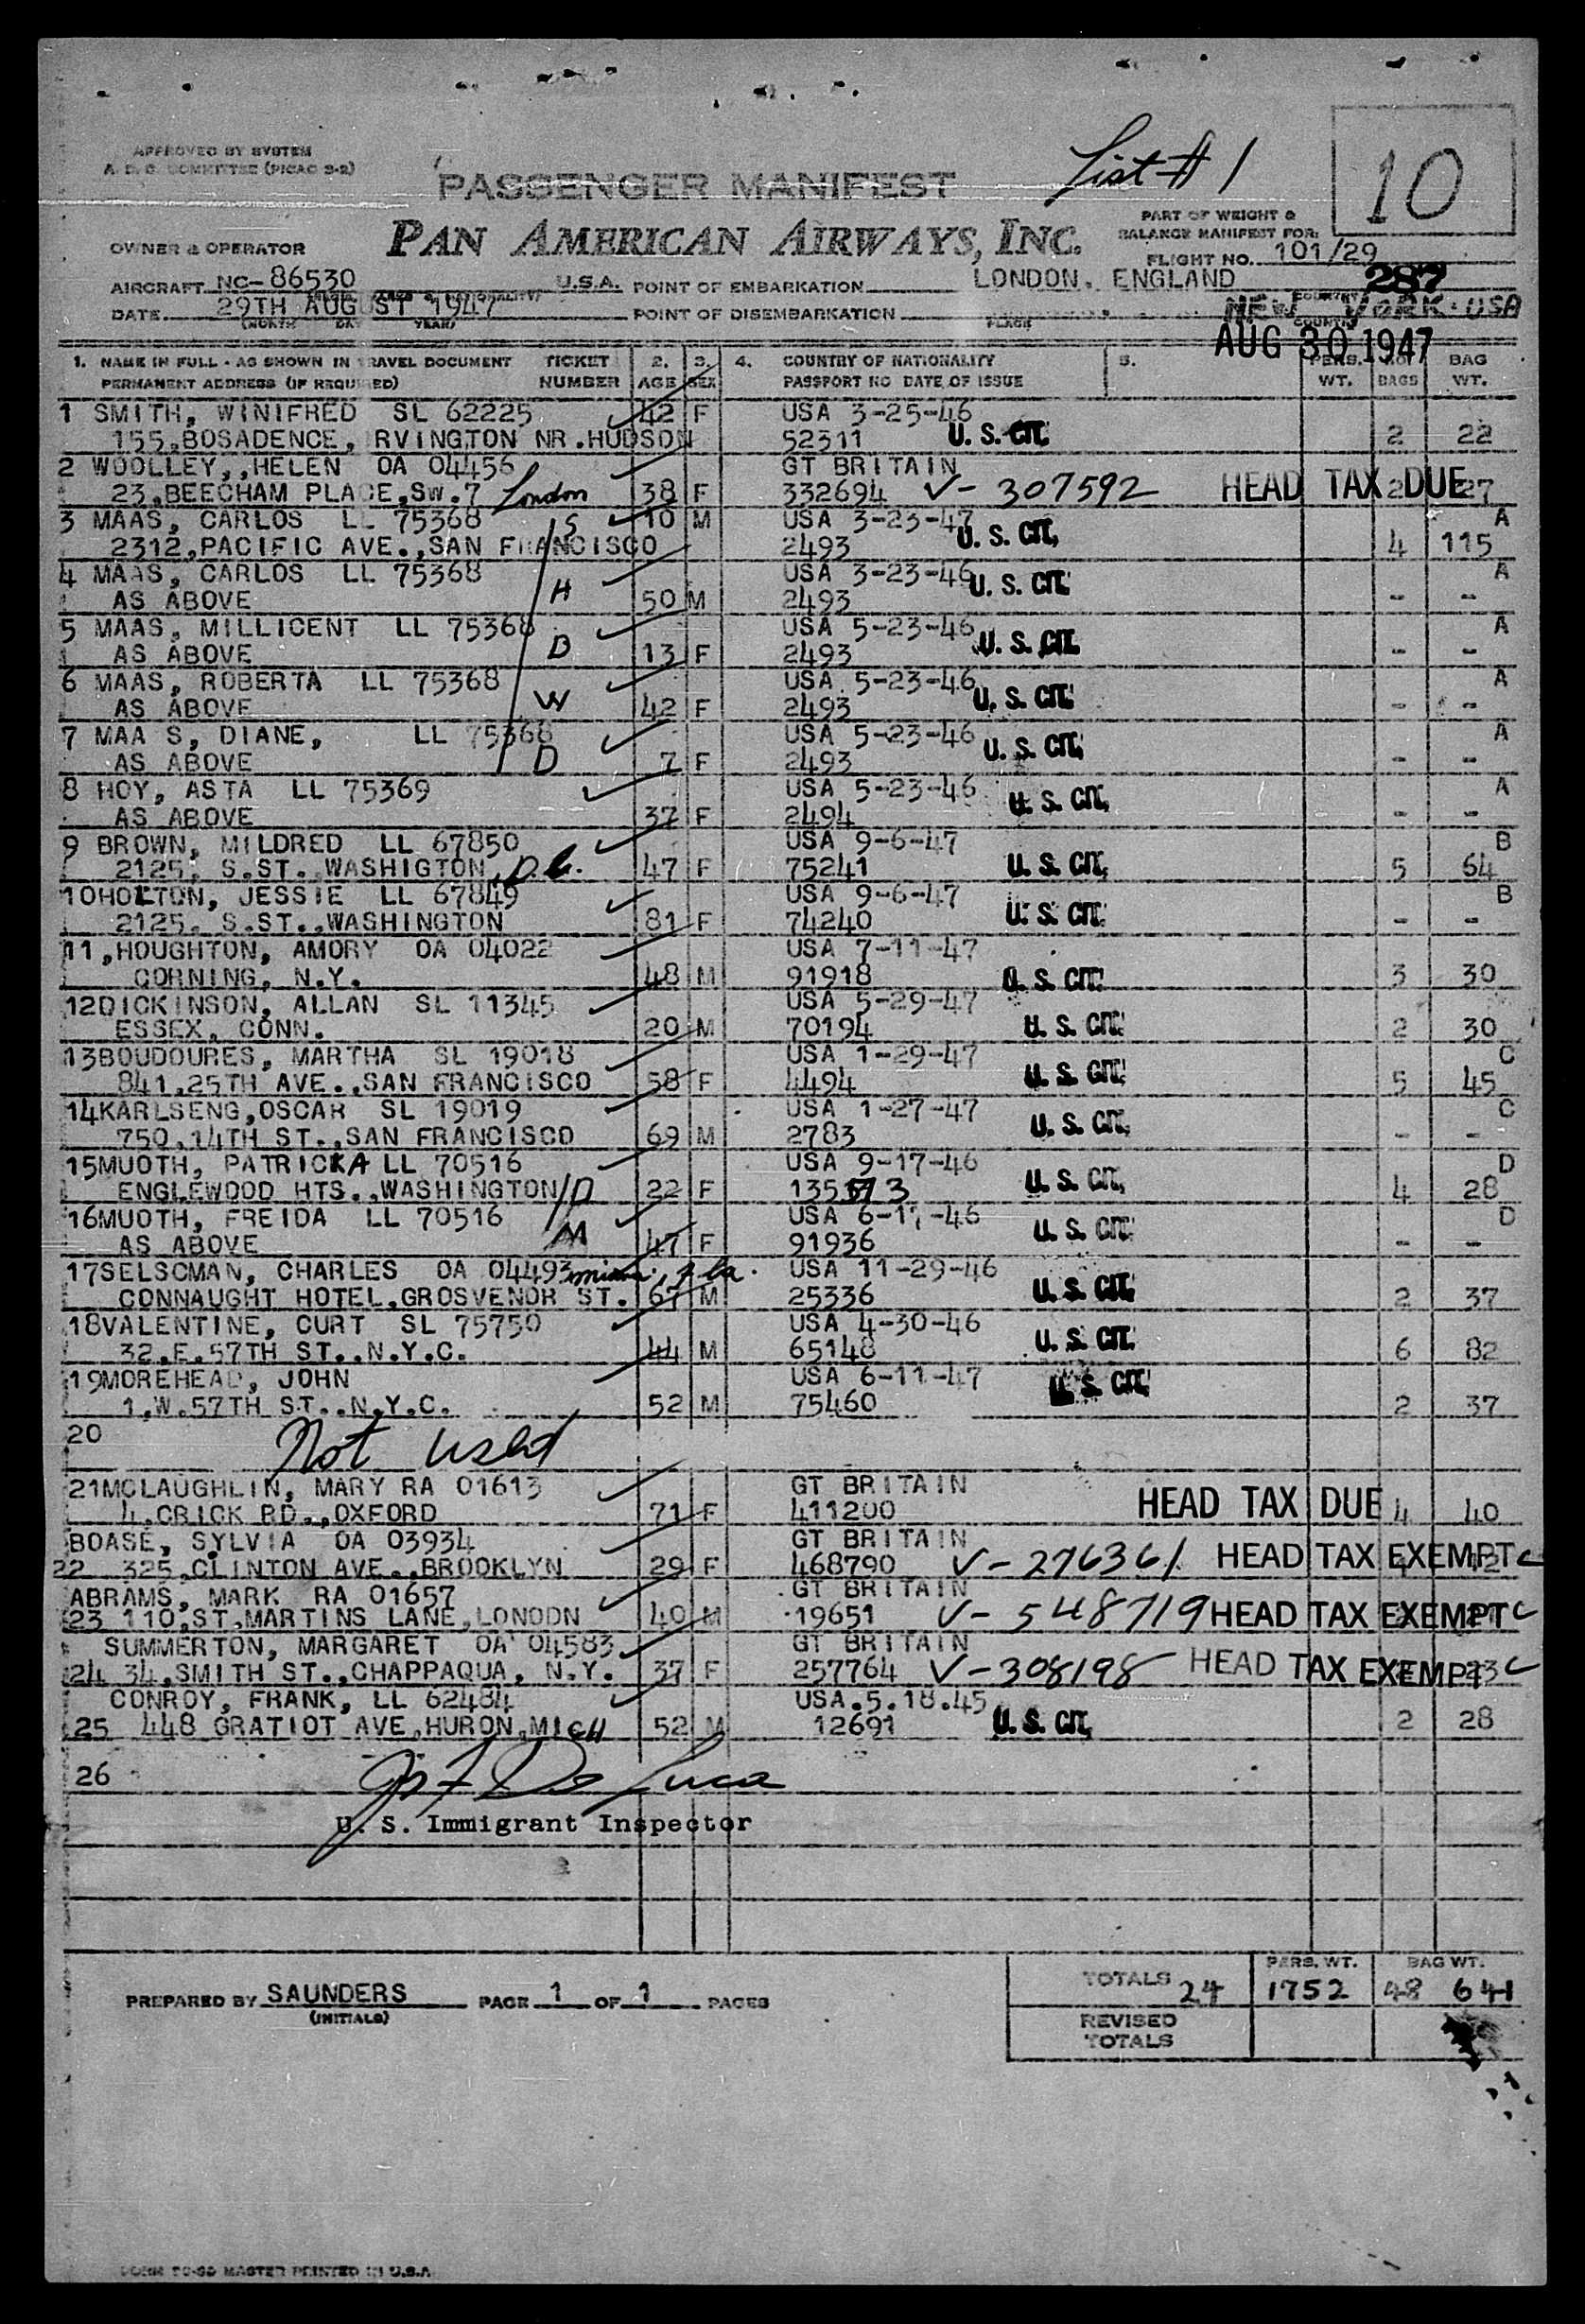 APPROVED BY SYSTEM
A. D. C. COMMITTEE (PICAO 3-2)
PASSENGER MANIFEST
List # 1
10
PART OF WEIGHT &
BALANCE MANIFEST FOR:
OWNER & OPERATOR
PAN AMERICAN AIRWAYS, INC.
FLIGHT NO. 101/29
AIRCRAFT NC-86530 U.S.A. POINT OF EMBARKATION LONDON. ENGLAND
287
DATE 29TH AUGUST 1947 POINT OF DISEMBARKATION NEW YORK. USA
(MONTH DAY YEAR) PLACE COUNTRY
AUG 30 1947
1. NAME IN FULL - AS SHOWN IN TRAVEL DOCUMENT TICKET 2. 3. 4. COUNTRY OF NATIONALITY 5. PERS. NO. BAG
PERMANENT ADDRESS (IF REQUIRED) NUMBER AGE SEX PASSPORT NO DATE OF ISSUE WT. BAGS WT.
1 SMITH, WINIFRED SL 62225 42 F USA 3-25-46
155,BOSADENCE, RVINGTON NR.HUDSON 52311 U. S. CIT. 2 22
2 WOOLLEY,,HELEN OA 04456 GT BRITAIN
23,BEECHAM PLACE,SW.7 London 38 F 332694 V- 307592 HEAD TAX DUE 2 27
3 MAAS, CARLOS LL 75368 S 10 M USA 3-23-47 A
2312,PACIFIC AVE.,SAN FRANCISCO 2493 U. S. CIT. 4 115
4 MAAS, CARLOS LL 75368 USA 3-23-46 A
AS ABOVE H 50 M 2493 U. S. CIT. - -
5 MAAS, MILLICENT LL 75368 USA 5-23-46 A
AS ABOVE D 13 F 2493 U. S. CIT. - -
6 MAAS, ROBERTA LL 75368 USA 5-23-46 A
AS ABOVE W 42 F 2493 U. S. CIT. - -
7 MAA S, DIANE, LL 75368 USA 5-23-46 A
AS ABOVE D 7 F 2493 U. S. CIT. - -
8 HOY, ASTA LL 75369 USA 5-23-46 A
AS ABOVE 37 F 2494 U. S. CIT. - -
9 BROWN, MILDRED LL 67850 USA 9-6-47 B
2125, S.ST. WASHIGTON, D.C. 47 F 75241 U. S. CIT. 5 64
10HOLTON, JESSIE LL 67849 USA 9-6-47 B
2125, S.ST.,WASHINGTON 81 F 74240 U. S. CIT. - -
11,HOUGHTON, AMORY OA 04022 USA 7-11-47
CORNING, N.Y. 48 M 91918 U. S. CIT. 3 30
12DICKINSON, ALLAN SL 11345 USA 5-29-47
ESSEX, CONN. 20 M 70194 U. S. CIT. 2 30
13BOUDOURES, MARTHA SL 19018 USA 1-29-47 C
841,25TH AVE.,SAN FRANCISCO 58 F 4494 U. S. CIT. 5 45
14KARLSENG,OSCAR SL 19019 USA 1-27-47 C
750,14TH ST.,SAN FRANCISCO 69 M 2783 U. S. CIT. - -
15MUOTH, PATRICKA LL 70516 USA 9-17-46 D
ENGLEWOOD HTS.,WASHINGTON D 22 F 135573 U. S. CIT. 4 28
16MUOTH, FREIDA LL 70516 USA 6-17-46 D
AS ABOVE M 47 F 91936 U. S. CIT. - -
17SELSCMAN, CHARLES OA 04493 miami, fla. USA 11-29-46
CONNAUGHT HOTEL,GROSVENOR ST. 67 M 25336 U. S. CIT. 2 37
18VALENTINE, CURT SL 75750 USA 4-30-46
32,E.57TH ST..N.Y.C. 44 M 65148 U. S. CIT. 6 82
19MOREHEAD, JOHN USA 6-11-47
1,W.57TH ST..N.Y.C. 52 M 75460 U. S. CIT. 2 37
20 Not used
21MCLAUGHLIN, MARY RA 01613 GT BRITAIN
4,CRICK RD.,OXFORD 71 F 411200 HEAD TAX DUE 4 40
BOASE, SYLVIA OA 03934 GT BRITAIN
22 325,CLINTON AVE.,BROOKLYN 29 F 468790 V- 276361 HEAD TAX EXEMPT 12
ABRAMS, MARK RA 01657 GT BRITAIN
23 110,ST.MARTINS LANE,LONODN 40 M 19651 V- 548719 HEAD TAX EXEMPT
SUMMERTON, MARGARET OA 04583 GT BRITAIN
24 34,SMITH ST.,CHAPPAQUA, N.Y. 37 F 257764 V-308198 HEAD TAX EXEMPT 23
CONROY, FRANK, LL 62484 USA.5.18.45
25 448 GRATIOT AVE,HURON,MICH 52 M 12691 U. S. CIT. 2 28
26
U. S. Immigrant Inspector
PREPARED BY SAUNDERS PAGE 1 OF 1 PAGES
(INITIALS)
PERS. WT. BAG WT.
TOTALS 24 1752 48 641
REVISED
TOTALS
MASTER PRINTED IN U.S.A.